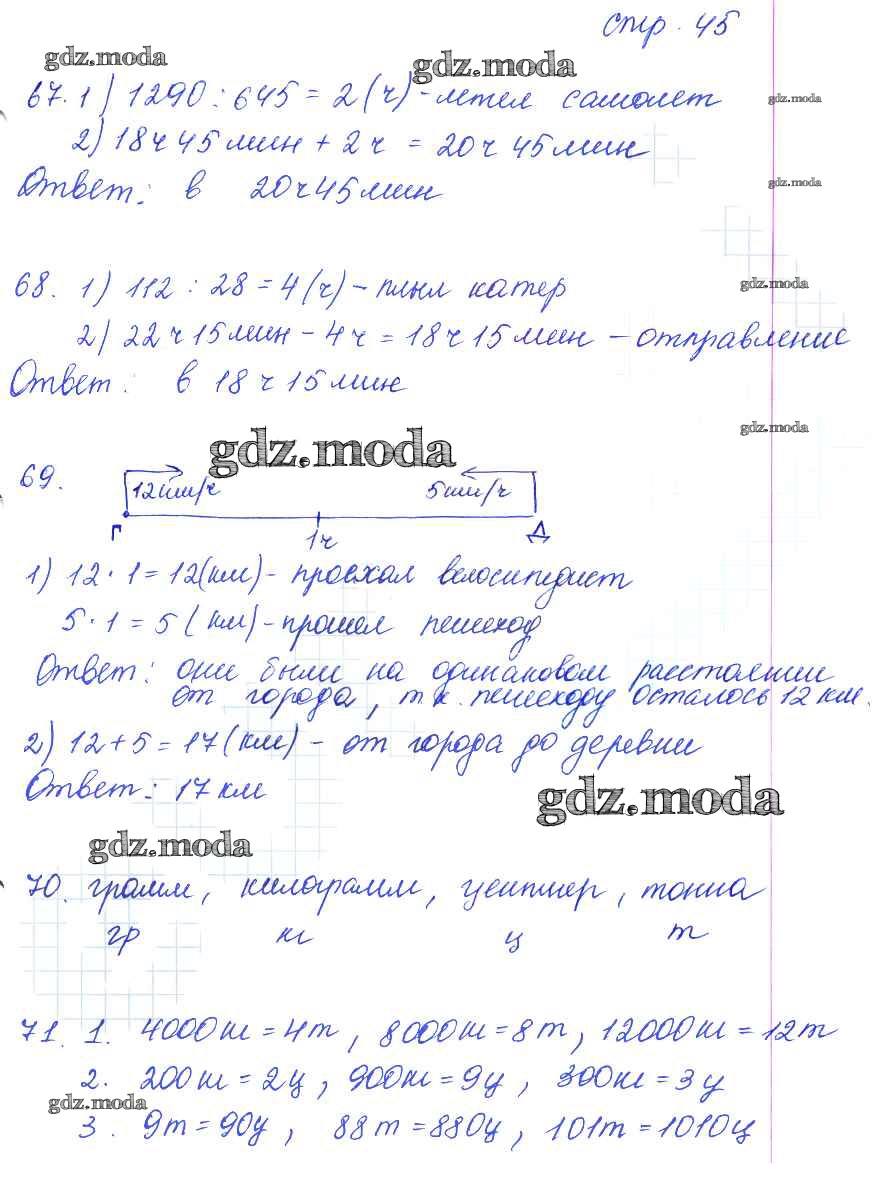 стр. 45
gdz.moda gdz.moda
67. 1) 1290 : 645 = 2 (ч) - летел самолет
gdz.moda
2) 18 ч 45 мин + 2 ч = 20 ч 45 мин
Ответ: в 20 ч 45 мин
gdz.moda
68. 1) 112 : 28 = 4 (ч) - плыл катер
gdz.moda
2) 22 ч 15 мин - 4 ч = 18 ч 15 мин - отправление
Ответ: в 18 ч 15 мин
gdz.moda
gdz.moda
69.
12 км/ч 5 км/ч
Г 1ч Д
1) 12 · 1 = 12 (км) - проехал велосипедист
5 · 1 = 5 (км) - прошел пешеход
Ответ: они были на одинаковом расстоянии
от города, т.к. пешеходу осталось 12 км.
2) 12 + 5 = 17 (км) - от города до деревни
Ответ: 17 км
gdz.moda
gdz.moda
70. грамм, килограмм, центнер, тонна
гр кг ц т
71. 1. 4000 кг = 4 т, 8000 кг = 8 т, 12000 кг = 12 т
2. 200 кг = 2 ц, 900 кг = 9 ц, 300 кг = 3 ц
gdz.moda
3. 9 т = 90 ц, 88 т = 880 ц, 101 т = 1010 ц